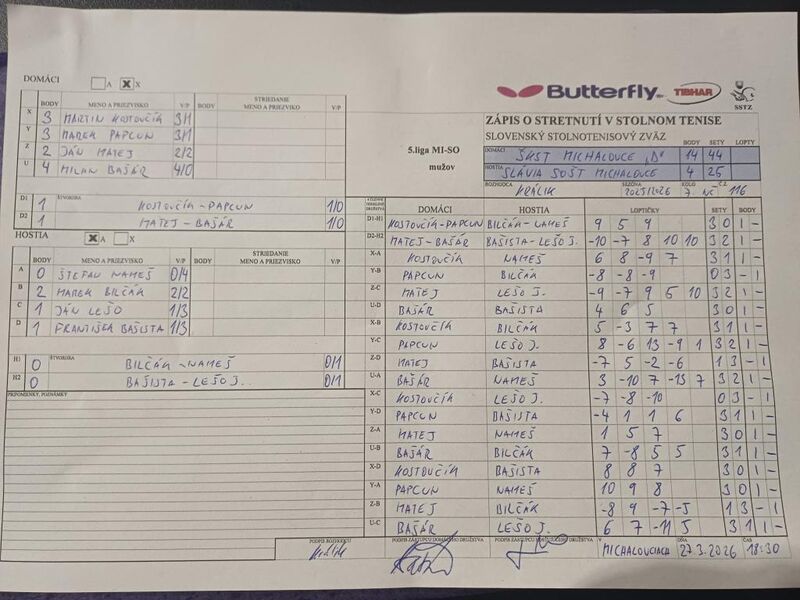 DOMÁCI A X
Butterfly TIBHAR SSTZ
BODY MENO A PRIEZVISKO V/P BODY STRIEDANIE MENO A PRIEZVISKO V/P
X 3 MARTIN KOSTOVČÍK 3/1
Y 3 MAREK PAPCUN 3/1
Z 2 JÁN MATEJ 2/2
U 4 MILAN BAŠÁR 4/0
5.liga MI-SO mužov
ZÁPIS O STRETNUTÍ V STOLNOM TENISE
SLOVENSKÝ STOLNOTENISOVÝ ZVÄZ
BODY SETY LOPTY
DOMÁCI ŠKST MICHALOVCE "D" 14 44
HOSTIA SLÁVIA SOŠT MICHALOVCE 4 25
ROZHODCA KRÁLIK SEZÓNA 2025/2026 KOLO 7. Č.Z. 116
D1 1 ŠTVORHRA KOSTOVČÍK - PAPCUN 1/0
D2 1 MATEJ - BAŠÁR 1/0
HOSTIA A X
BODY MENO A PRIEZVISKO V/P BODY STRIEDANIE MENO A PRIEZVISKO V/P
A 0 ŠTEFAN NAMEŠ 0/4
B 2 MAREK BILČÁK 2/2
C 1 JÁN LEŠO 1/3
D 1 FRANTIŠEK BAŠISTA 1/3
H1 0 ŠTVORHRA BILČÁK - NAMEŠ 0/1
H2 0 BAŠISTA - LEŠO J. 0/1
PRIPOMIENKY, POZNÁMKY
DOMÁCI HOSTIA LOPTIČKY SETY BODY
D1-H1 KOSTOVČÍK-PAPCUN BILČÁK-NAMEŠ 9 5 9 3 0 1 -
D2-H2 MATEJ - BAŠÁR BAŠISTA-LEŠO J. -10 -7 8 10 10 3 2 1 -
X-A KOSTOVČÍK NAMEŠ 6 8 -9 7 3 1 1 -
Y-B PAPCUN BILČÁK -8 -8 -9 0 3 - 1
Z-C MATEJ LEŠO J. -9 -7 9 5 10 3 2 1 -
U-D BAŠÁR BAŠISTA 4 6 5 3 0 1 -
X-B KOSTOVČÍK BILČÁK 5 -3 7 7 3 1 1 -
Y-C PAPCUN LEŠO J. 8 -6 13 -9 1 3 2 1 -
Z-D MATEJ BAŠISTA -7 5 -2 -6 1 3 - 1
U-A BAŠÁR NAMEŠ 3 -10 7 -13 7 3 2 1 -
X-C KOSTOVČÍK LEŠO J. -7 -8 -10 0 3 - 1
Y-D PAPCUN BAŠISTA -4 1 1 6 3 1 1 -
Z-A MATEJ NAMEŠ 1 5 7 3 0 1 -
U-B BAŠÁR BILČÁK 7 -8 5 5 3 1 1 -
X-D KOSTOVČÍK BAŠISTA 8 8 7 3 0 1 -
Y-A PAPCUN NAMEŠ 10 9 8 3 0 1 -
Z-B MATEJ BILČÁK -8 9 -7 -5 1 3 - 1
U-C BAŠÁR LEŠO J. 6 7 -11 5 3 1 1 -
PODPIS ROZHODCU PODPIS ZÁSTUPCU DOMÁCEHO DRUŽSTVA PODPIS ZÁSTUPCU HOSŤUJÚCEHO DRUŽSTVA V MICHALOVCIACH DŇA 27.3.2026 ČAS 18:30